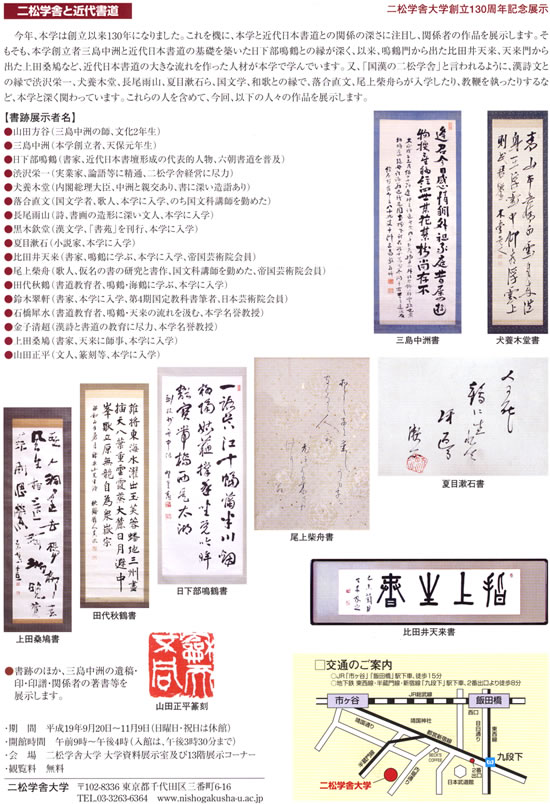 二松学舎と近代書道
二松学舎大学創立130周年記念展示
今年、本学は創立以来130年になりました。これを機に、本学と近代日本書道との関係の深さに注目し、関係者の作品を展示します。そ
もそも、本学創立者三島中洲と近代日本書道の基礎を築いた日下部鳴鶴との縁が深く、以来、鳴鶴門から出た比田井天来、天来門から
出た上田桑鳩など、近代日本書道の大きな流れを作った人材が本学で学んでいます。又、「国漢の二松学舎」と言われるように、漢詩文と
の縁で渋沢栄一、犬養木堂、長尾雨山、夏目漱石ら、国文学、和歌との縁で、落合直文、尾上柴舟らが入学したり、教鞭を執ったりするな
ど、本学と深く関わっています。これらの人を含めて、今回、以下の人々の作品を展示します。
【書跡展示者名】
●山田方谷(三島中洲の師、文化2年生)
●三島中洲(本学創立者、天保元年生)
●日下部鳴鶴(書家、近代日本書壇形成の代表的人物、六朝書道を普及)
●渋沢栄一(実業家、論語等に精通、二松学舎経営に尽力)
●犬養木堂(内閣総理大臣、中洲と親交あり、書に深い造詣あり)
●落合直文(国文学者、歌人、本学に入学、のち国文科講師を勤めた)
●長尾雨山(詩、書画の造形に深い文人、本学に入学)
●黒木欽堂(漢文学、「書苑」を刊行、本学に入学)
●夏目漱石(小説家、本学に入学)
●比田井天来(書家、鳴鶴に学ぶ、本学に入学、帝国芸術院会員)
●尾上柴舟(歌人、仮名の書の研究と書作、国文科講師を勤めた、帝国芸術院会員)
●田代秋鶴(書道教育者、鳴鶴・海鶴に学ぶ、本学に入学)
●鈴木翠軒(書家、本学に入学、第4期国定教科書筆者、日本芸術院会員)
●石橋犀水(書道教育者、鳴鶴・天来の流れを汲む、本学名誉教授)
●金子清超(漢詩と書道の教育に尽力、本学名誉教授)
●上田桑鳩(書家、天来に師事、本学に入学)
●山田正平(文人、篆刻等、本学に入学)
三島中洲書
犬養木堂書
上田桑鳩書
田代秋鶴書
日下部鳴鶴書
尾上柴舟書
夏目漱石書
比田井天来書
山田正平篆刻
●書跡のほか、三島中洲の遺稿・
印・印譜・関係者の著書等を
展示します。
・期 間 平成19年9月20日～11月9日(日曜日・祝日は休館)
・開館時間 午前9時～午後4時(入館は、午後3時30分まで)
・会 場 二松学舎大学 大学資料展示室及び13階展示コーナー
・観覧料 無料
二松学舎大学 〒102-8336 東京都千代田区三番町6-16
TEL.03-3263-6364 www.nishogakusha-u.ac.jp
□交通のご案内
○JR「市ヶ谷」「飯田橋」駅下車、徒歩15分
○地下鉄 東西線・半蔵門線・新宿線「九段下」駅下車、2番出口より徒歩8分
市ヶ谷
JR総武線
飯田橋
西口
靖国通り
靖国神社
目白通り
東西線
都営新宿線
半蔵門線
BECK'S COFFEE
2番出口
九段下
日本武道館
二松学舎大学